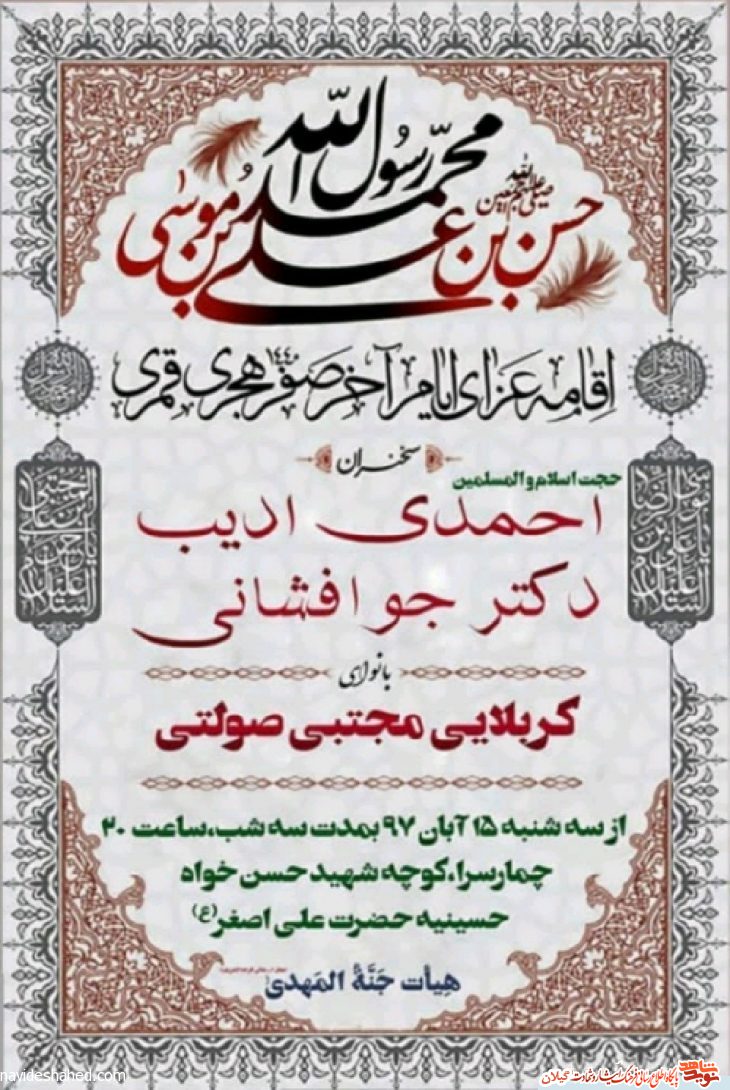 محمد رسول الله
صلی الله علیه و آله
حسن بن علی بن موسی
اقامه عزای ایام آخر صفر ۱۴۴۰ هجری قمری
سخنران
حجت اسلام و المسلمین
احمدی ادیب
دکتر جوافشانی
بانوای
کربلایی مجتبی صولتی
از سه شنبه ۱۵ آبان ۹۷ بمدت سه شب، ساعت ۲۰
چمارسرا، کوچه شهید حسن خواه
حسینیه حضرت علی اصغر (ع)
هیأت جَنَّةُ المَهدی
navideshahed.com
نوید شاهد